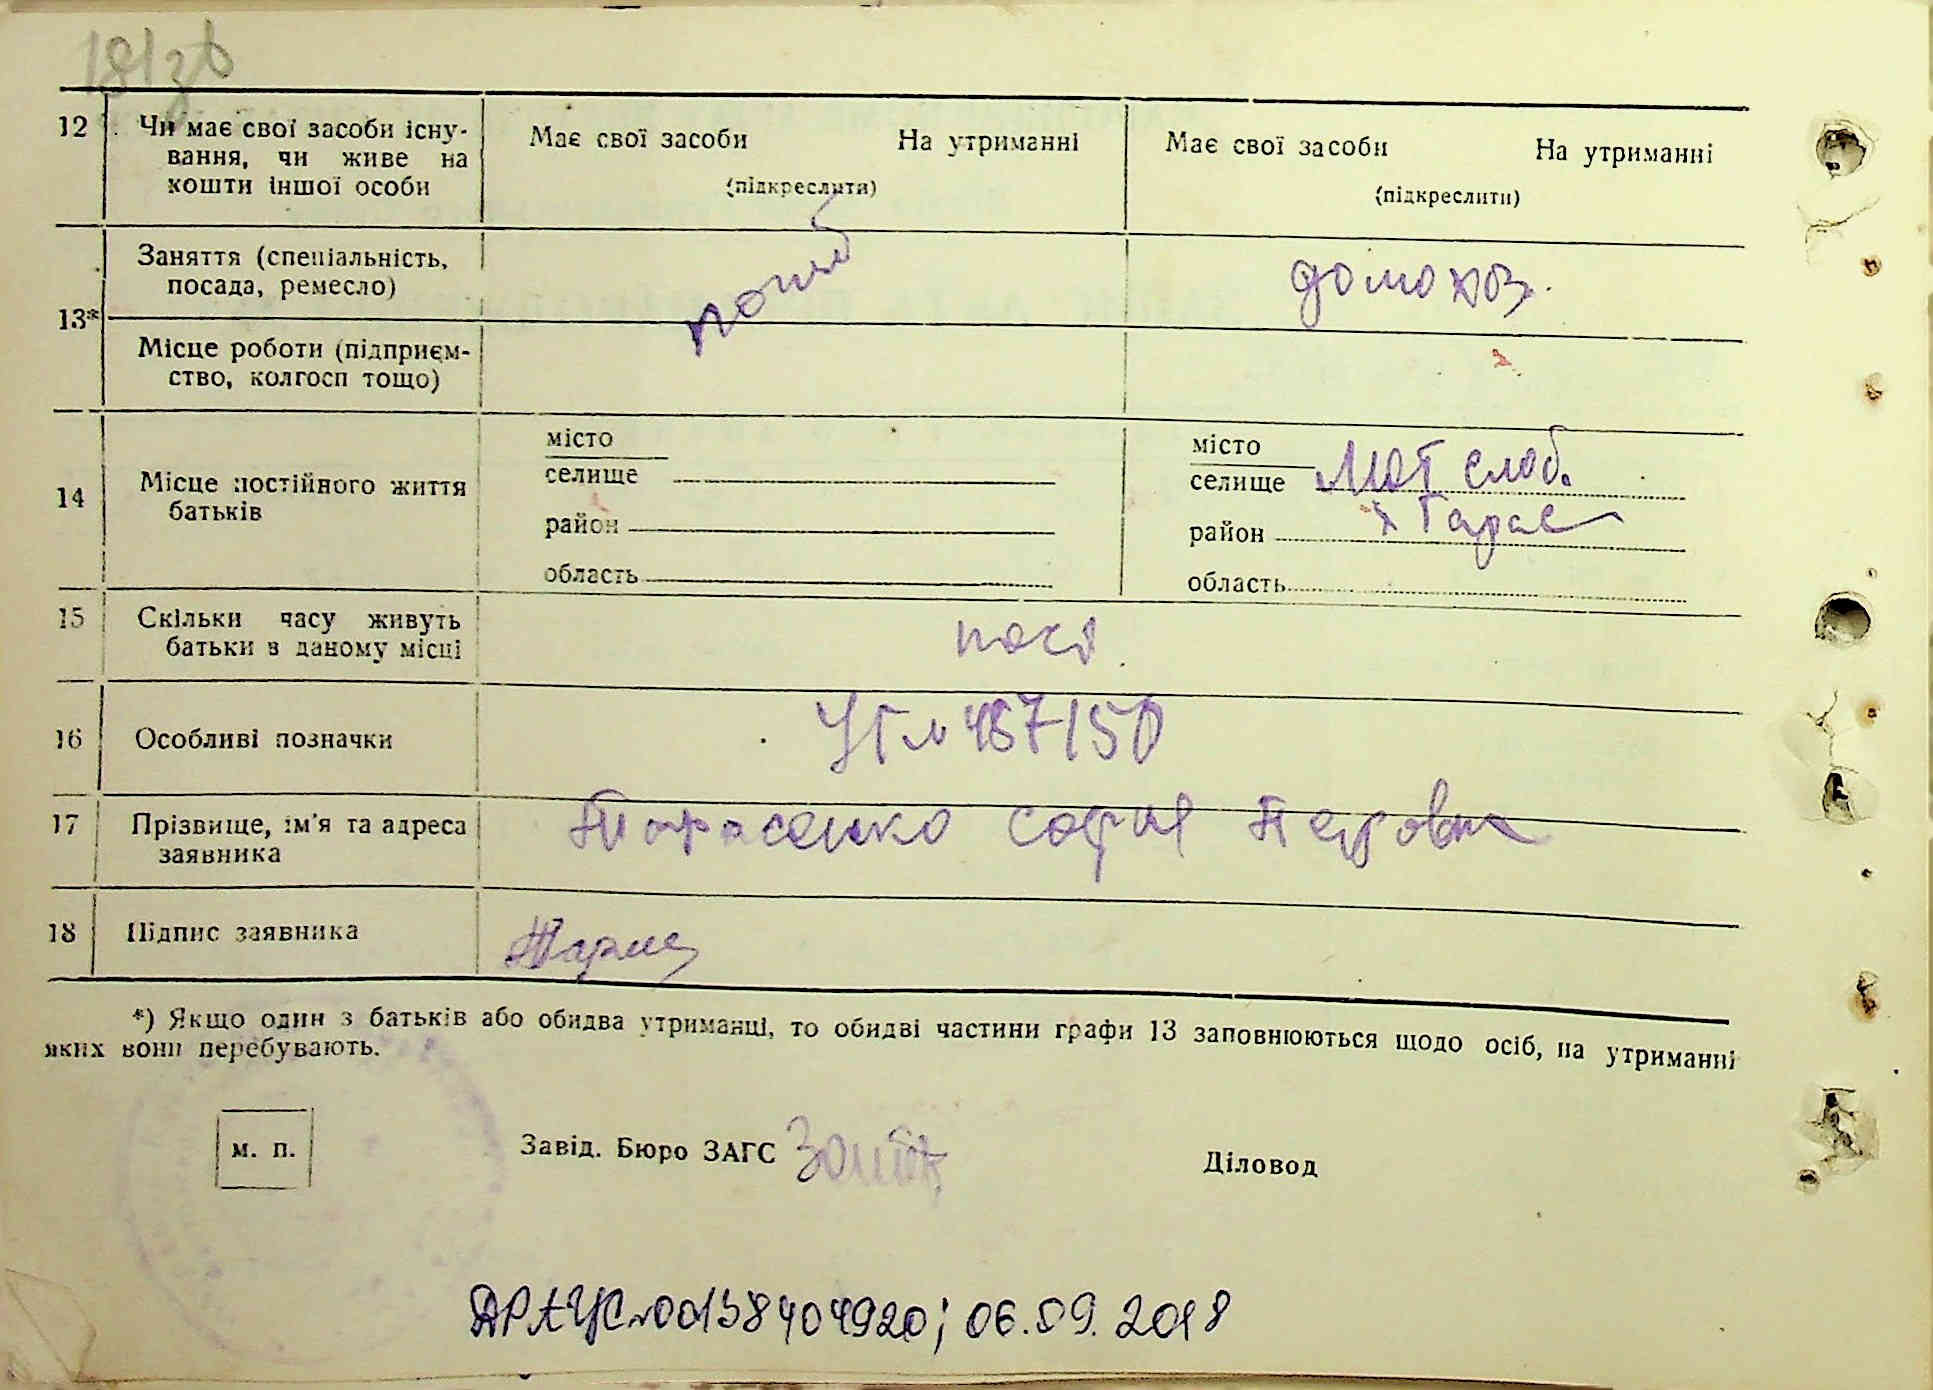 181зв
12 Чи має свої засоби існу-
вання, чи живе на
кошти іншої особи
Має свої засоби На утриманні
(підкреслити)
Має свої засоби На утриманні
(підкреслити)
13*
Заняття (спеціальність,
посада, ремесло)
домохоз.
Місце роботи (підприєм-
ство, колгосп тощо)
14 Місце постійного життя
батьків
місто
селище
район
область
місто
селище Мат слоб.
х Тарас
район
область
15 Скільки часу живуть
батьки в даному місці
пост
16 Особливі позначки
УГ № 487150
17 Прізвище, ім'я та адреса
заявника
Тарасенко София Петровна
18 Підпис заявника
*) Якщо один з батьків або обидва утриманці, то обидві частини графи 13 заповнюються щодо осіб, на утриманні
яких вони перебувають.
м. п.
Завід. Бюро ЗАГС
Діловод
ДРАЦС №00138404920; 06.09.2018